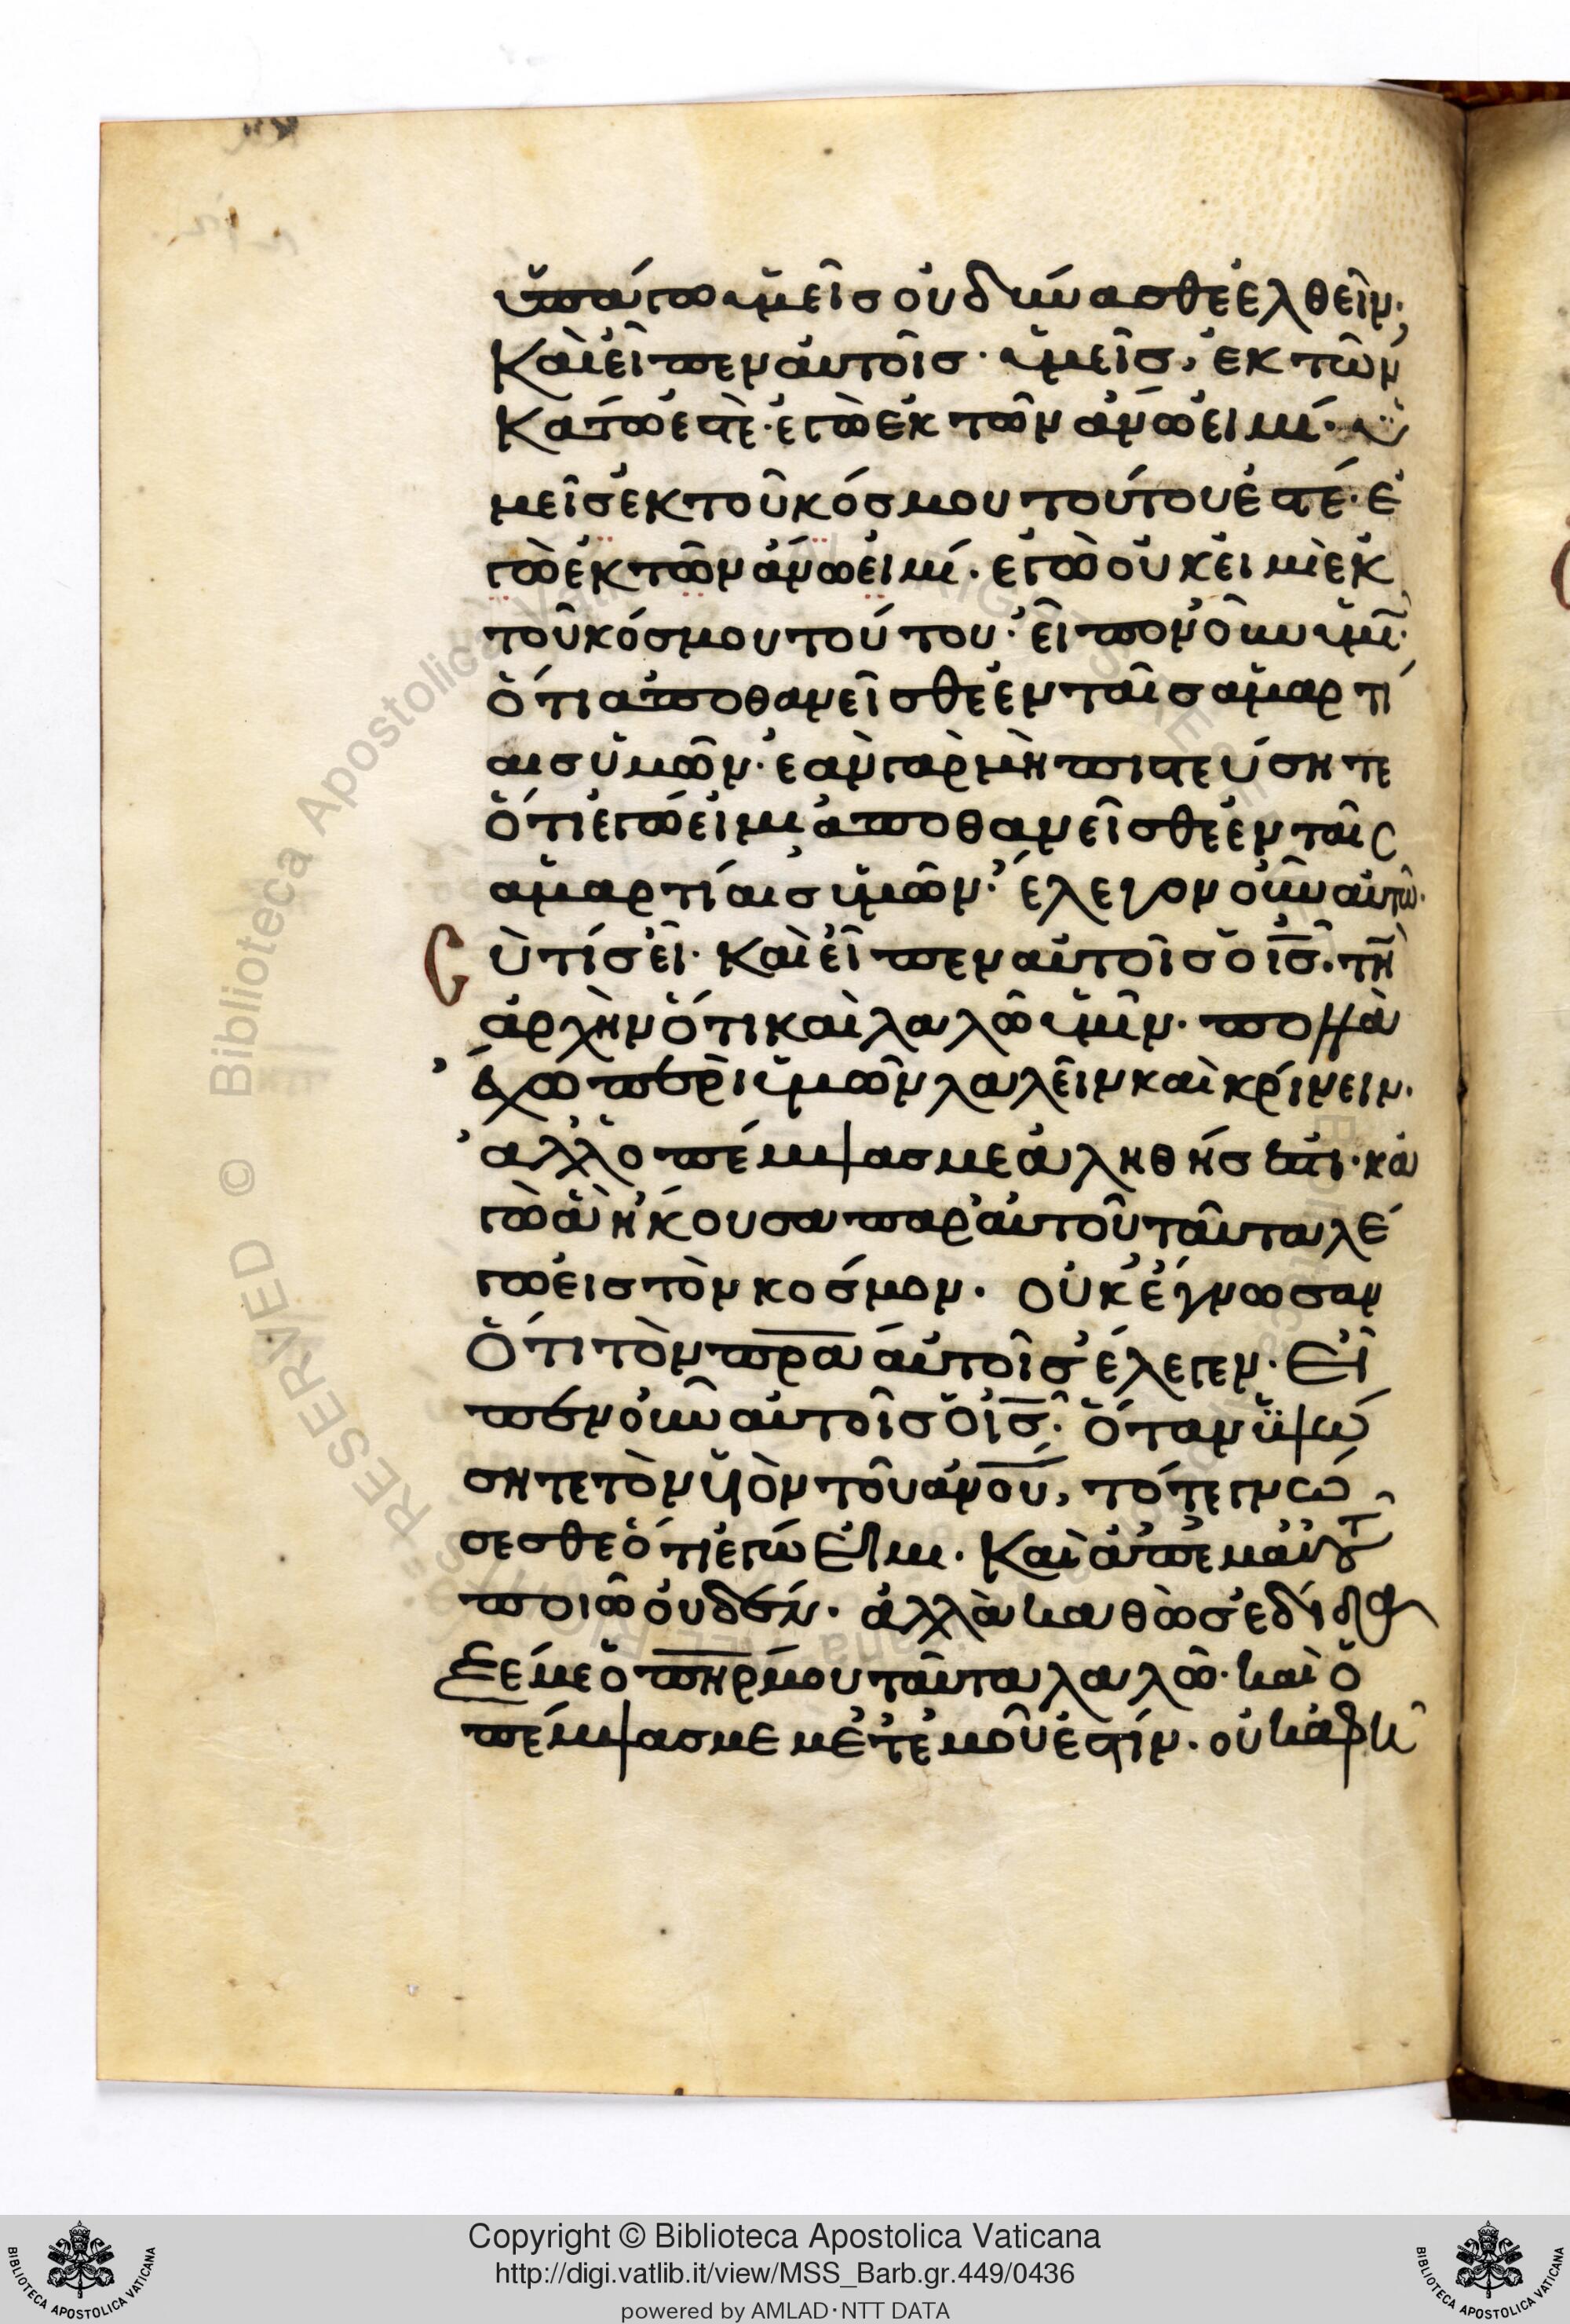 ὑπάγω ὑμεῖς οὐ δύνασθε ἐλθεῖν·
Καὶ εἶπεν αὐτοῖς· ὑμεῖς, ἐκ τῶν
κάτω ἐστέ· ἐγὼ ἐκ τῶν ἄνω εἰμί· ὑ
μεῖς ἐκ τοῦ κόσμου τούτου ἐστέ· ἐ
γὼ ἐκ τῶν ἄνω εἰμί. ἐγὼ οὐκ εἰμὶ ἐκ
τοῦ κόσμου τούτου· εἶπον οὖν ὑμῖ·
ὅτι ἀποθανεῖσθε ἐν ταῖς ἁμαρτί
αις ὑμῶν· ἐὰν γὰρ μὴ πιστεύσητε
ὅτι ἐγώ εἰμι ἀποθανεῖσθε ἐν ταῖς
ἁμαρτίαις ὑμῶν· ἔλεγον οὖν αὐτῶ·
Σὺ τίς εἶ· Καὶ εἶπεν αὐτοῖς ὁ ις̅· τὴ
ἀρχὴν ὅτι καὶ λαλῶ ὑμῖν· πολλὰ
ἔχω περὶ ὑμῶν λαλεῖν καὶ κρίνειν·
ἀλλ' ὁ πέμψας με ἀληθής ἐστι· κα
γὼ ἃ ἤκουσα παρ' αὐτοῦ ταῦτα λέ
γω εἰς τὸν κόσμον· οὐκ ἔγνωσαν
ὅτι τὸν πρα̅ αὐτοῖς ἔλεγεν· Εἶ
πεν οὖν αὐτοῖς ὁ ις̅· ὅταν ὑψώ
σητε τὸν υἱὸν τοῦ ανου̅, τότε γνώ
σεσθε ὅτι ἐγώ εἰμι· Καὶ ἀπ' ἐμαυτοῦ
ποιῶ οὐδέν· ἀλλὰ καθὼς ἐδίδα
ξέ με ὁ πηρ̅ μου ταῦτα λαλῶ· καὶ ὁ
πέμψας με μετ' ἐμοῦ ἐστίν· οὐκ ἀφῆ
Copyright © Biblioteca Apostolica Vaticana
http://digi.vatlib.it/view/MSS_Barb.gr.449/0436
powered by AMLAD·NTT DATA
BIBLIOTECA APOSTOLICA VATICANA
BIBLIOTECA APOSTOLICA VATICANA